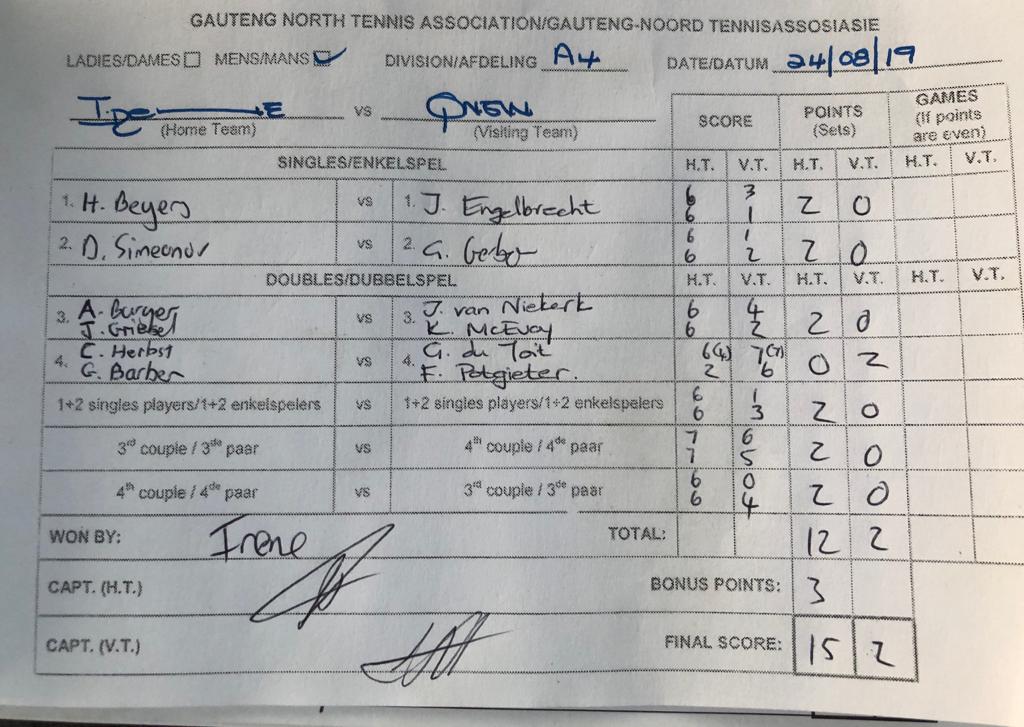 GAUTENG NORTH TENNIS ASSOCIATION/GAUTENG-NOORD TENNISASSOSIASIE
LADIES/DAMES MENS/MANS DIVISION/AFDELING A4 DATE/DATUM 24/08/19
vs
(Home Team) (Visiting Team)
SCORE POINTS (Sets) GAMES (If points are even)
SINGLES/ENKELSPEL H.T. V.T. H.T. V.T. H.T. V.T.
1. H. Beyers vs 1. J. Engelbrecht 6 3 2 0
6 1
2. D. Simeonov vs 2. G. Gerber 6 1 2 0
6 2
DOUBLES/DUBBELSPEL H.T. V.T. H.T. V.T. H.T. V.T.
3. A. Burger vs 3. J. van Niekerk 6 4 2 0
J. Griebel K. McEvoy 6 2
4. C. Herbst vs 4. G. du Toit 6(4) 7(7) 0 2
G. Barber F. Potgieter. 2 6
1+2 singles players/1+2 enkelspelers vs 1+2 singles players/1+2 enkelspelers 6 1 2 0
6 3
3rd couple / 3de paar vs 4th couple / 4de paar 7 6 2 0
7 5
4th couple / 4de paar vs 3rd couple / 3de paar 6 0 2 0
6 4
WON BY: Irene TOTAL: 12 2
CAPT. (H.T.) BONUS POINTS: 3
CAPT. (V.T.) FINAL SCORE: 15 2